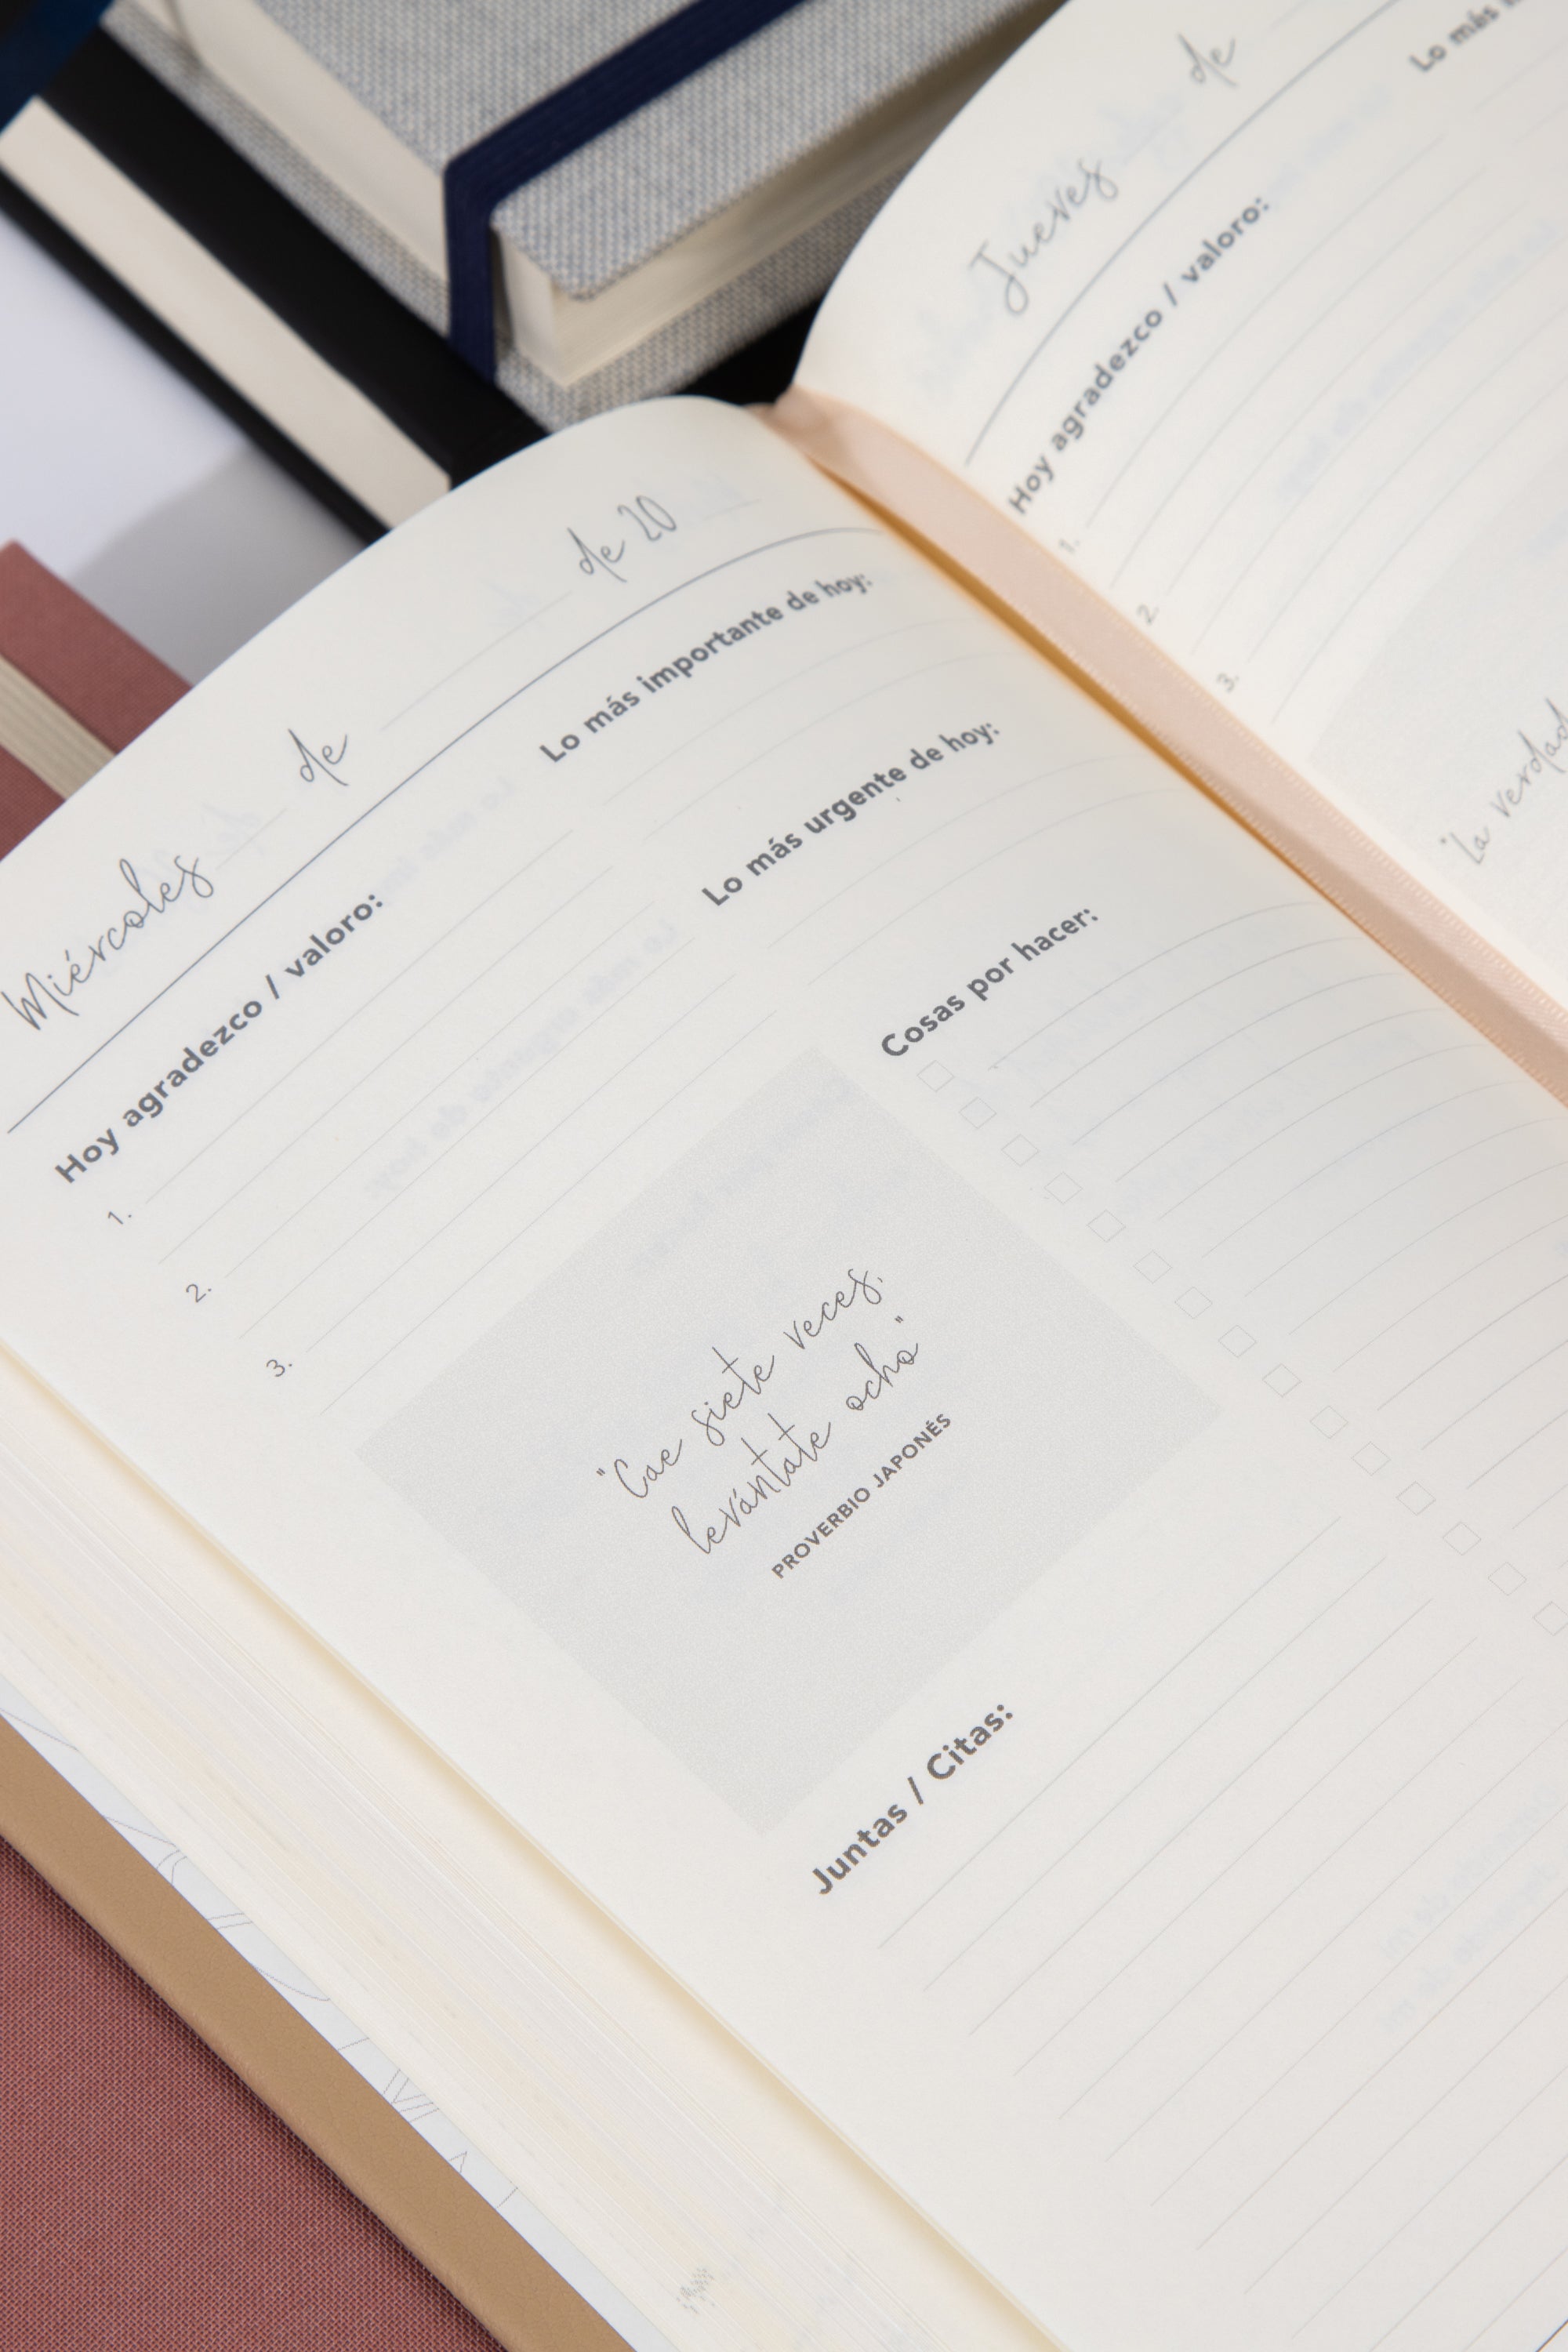 Miércoles de de 20
Hoy agradezco / valoro:
1.
2.
3.
Lo más importante de hoy:
Lo más urgente de hoy:
Cosas por hacer:
"Cae siete veces,
levántate ocho"
PROVERBIO JAPONÉS
Juntas / Citas:
Jueves de
Hoy agradezco / valoro:
1.
2.
3.
Lo más
"La verdad